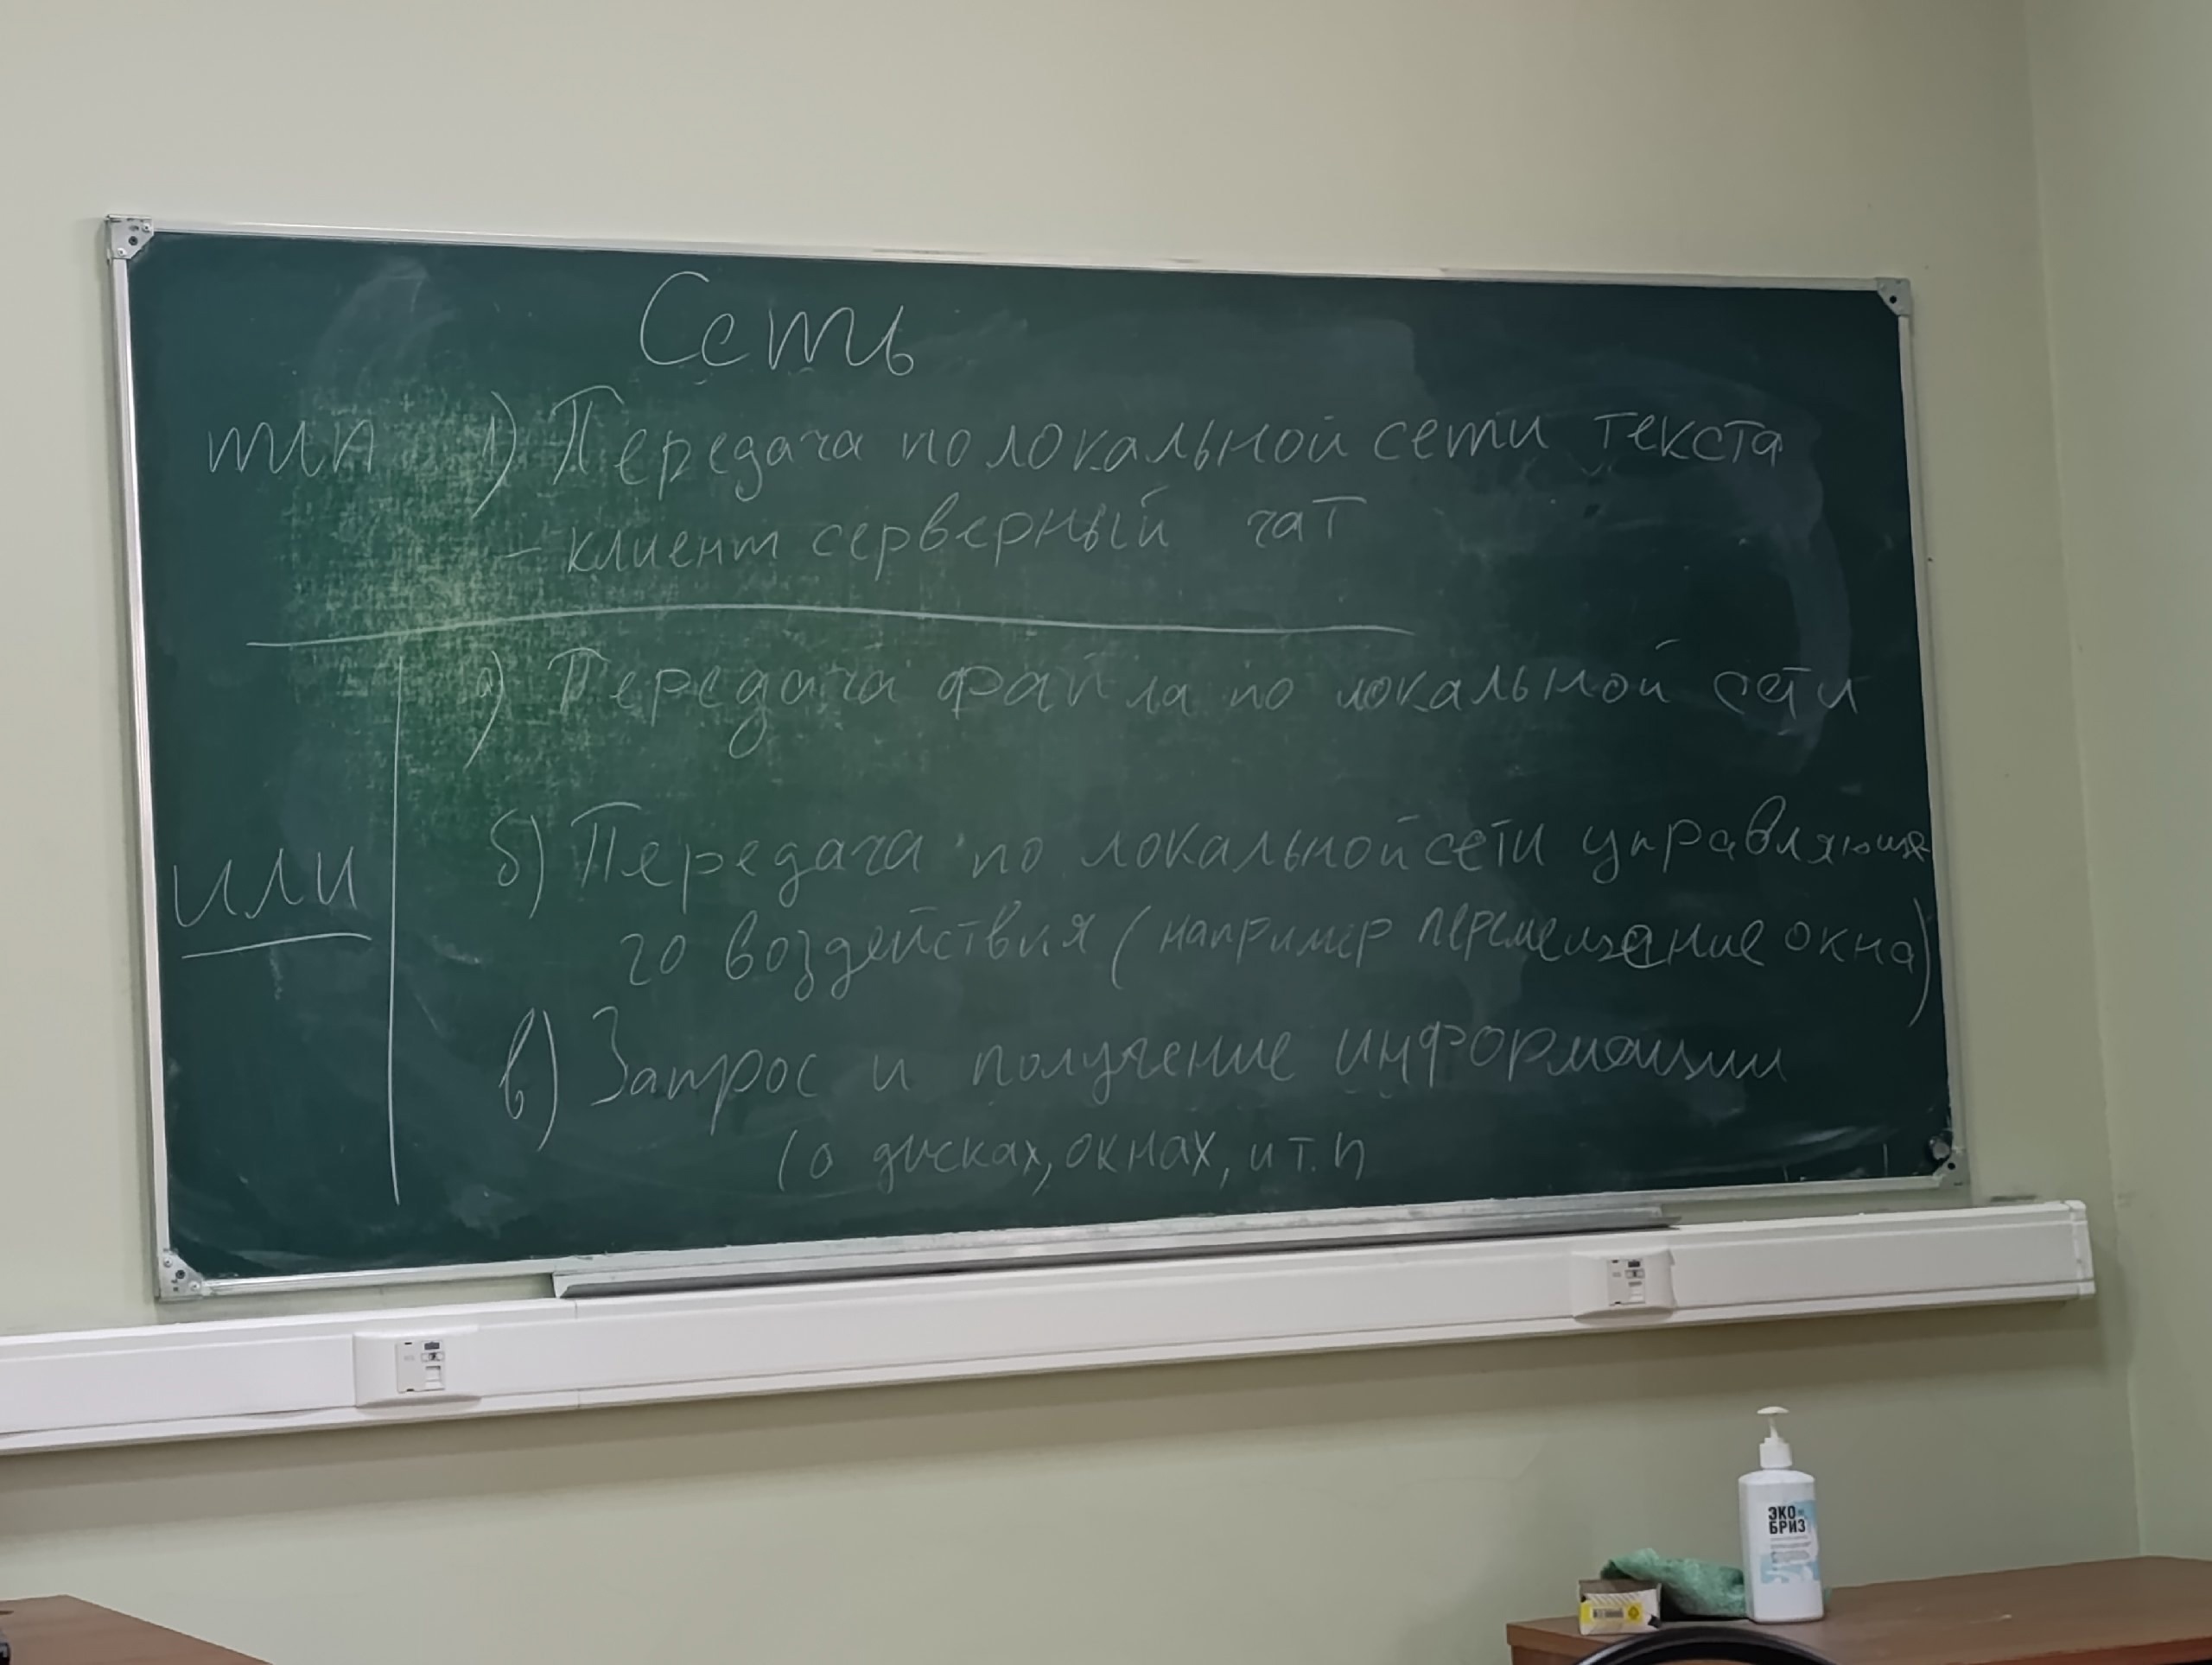 Сеть
min 1) Передача по локальной сети текста
- клиент серверный чат
а) Передача файла по локальной сети
б) Передача по локальной сети управляюще
го воздействия (например перемещение окна)
или
в) Запрос и получение информации
(о дисках, окнах, и т.п
ЭКО
БРИЗ